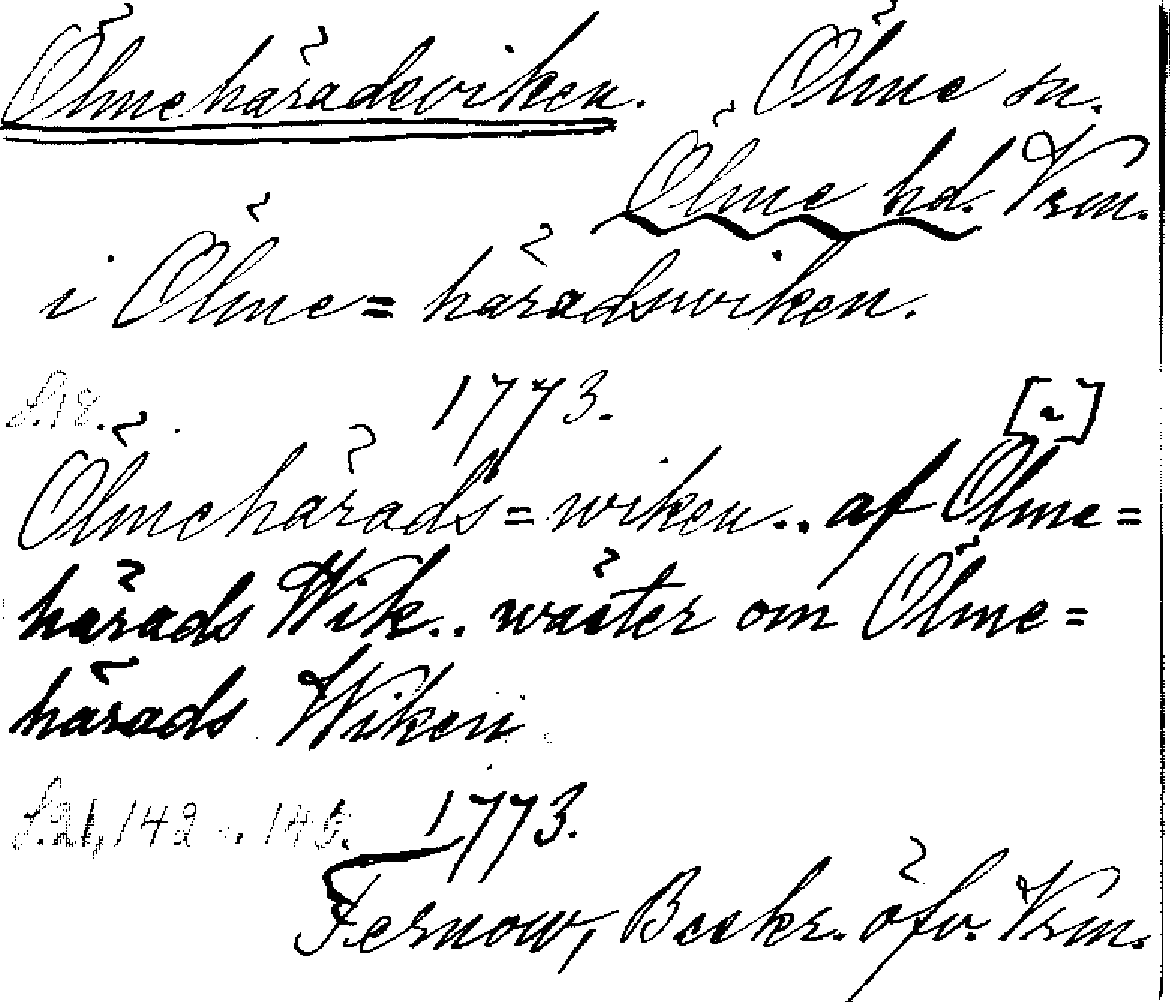 Ölmehäradsviken. Ölme sn.
Ölme hd. Vrm.
i Ölme=häradswiken.
S. 18. 1773. [a]
Ölmehärads=wiken.. af Ölme=
härads Wik.. wäster om Ölme=
härads Wiken
S. 21, 142 o. 145. 1773.
Fernow, Beskr. öfv. Vrm.